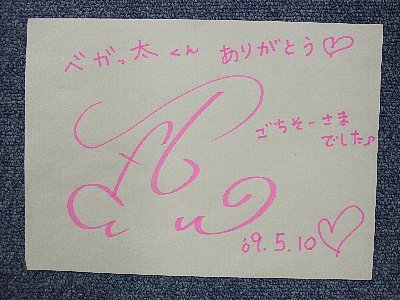 べがっ太くん ありがとう♡
ごちそーさま
でした♪
'09.5.10♡